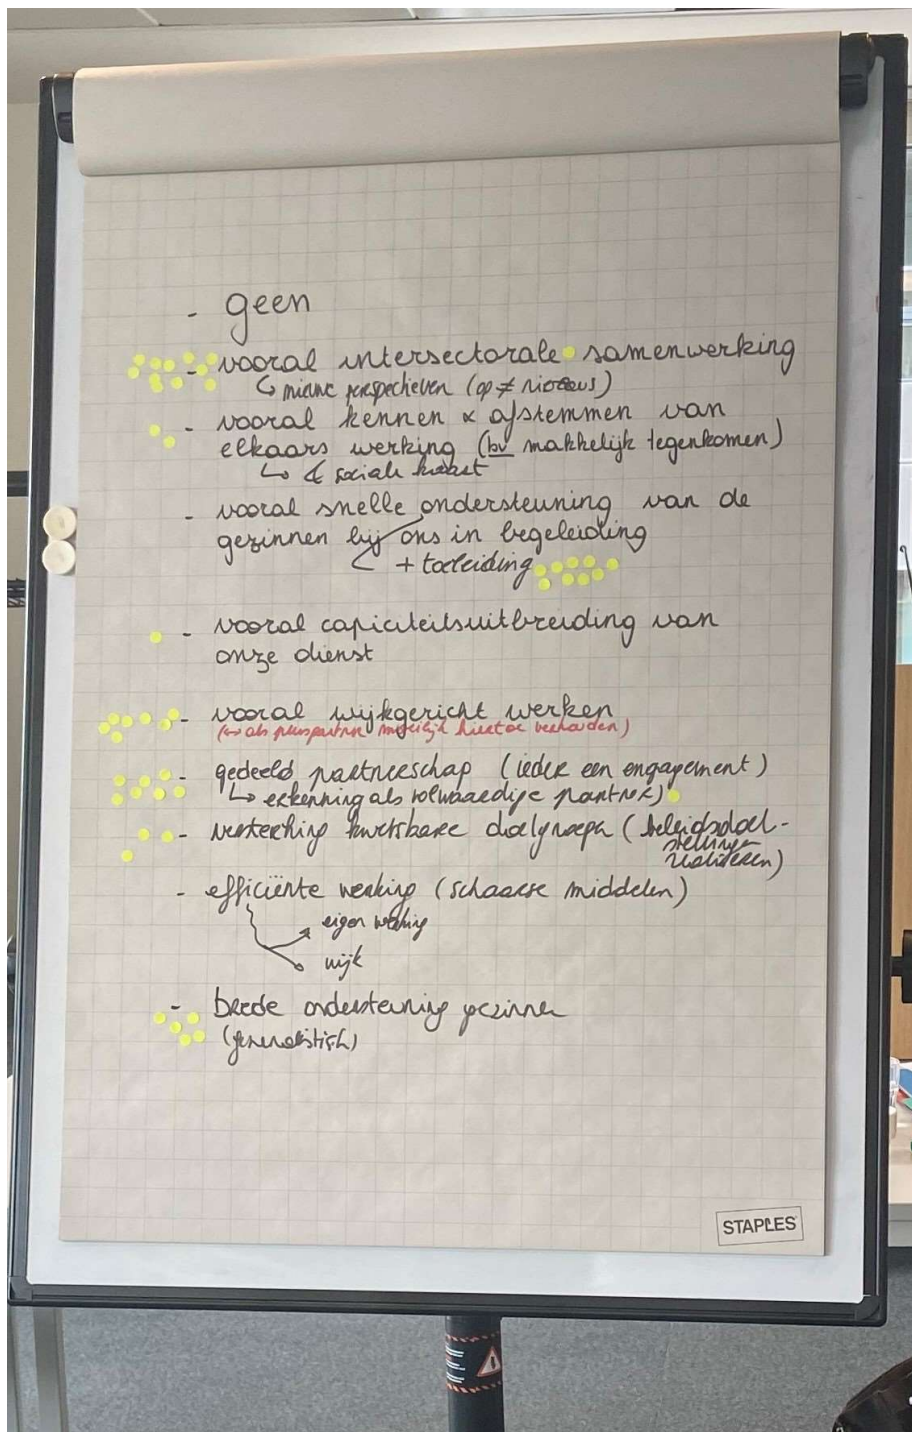 - geen
- vooral intersectorale samenwerking
↳ nieuwe perspectieven (op ≠ niveaus)
- vooral kennen & afstemmen van
elkaars werking (bv makkelijk tegenkomen)
↳ sociale kaart
- vooral snelle ondersteuning van de
gezinnen bij ons in begeleiding
+ toeleiding
- vooral capiciteitsuitbreiding van
onze dienst
- vooral wijkgericht werken
(↔ als moeilijk hiertoe verhouden)
- gedeeld partnerschap (ieder een engagement)
↳ erkenning als volwaardige partner)
- versterking kwetsbare doelgroepen (beleidsdoel-
stellingen
realiseren)
- efficiënte werking (schaarse middelen)
eigen werking
wijk
- brede ondersteuning gezinnen
(generalistisch)
STAPLES